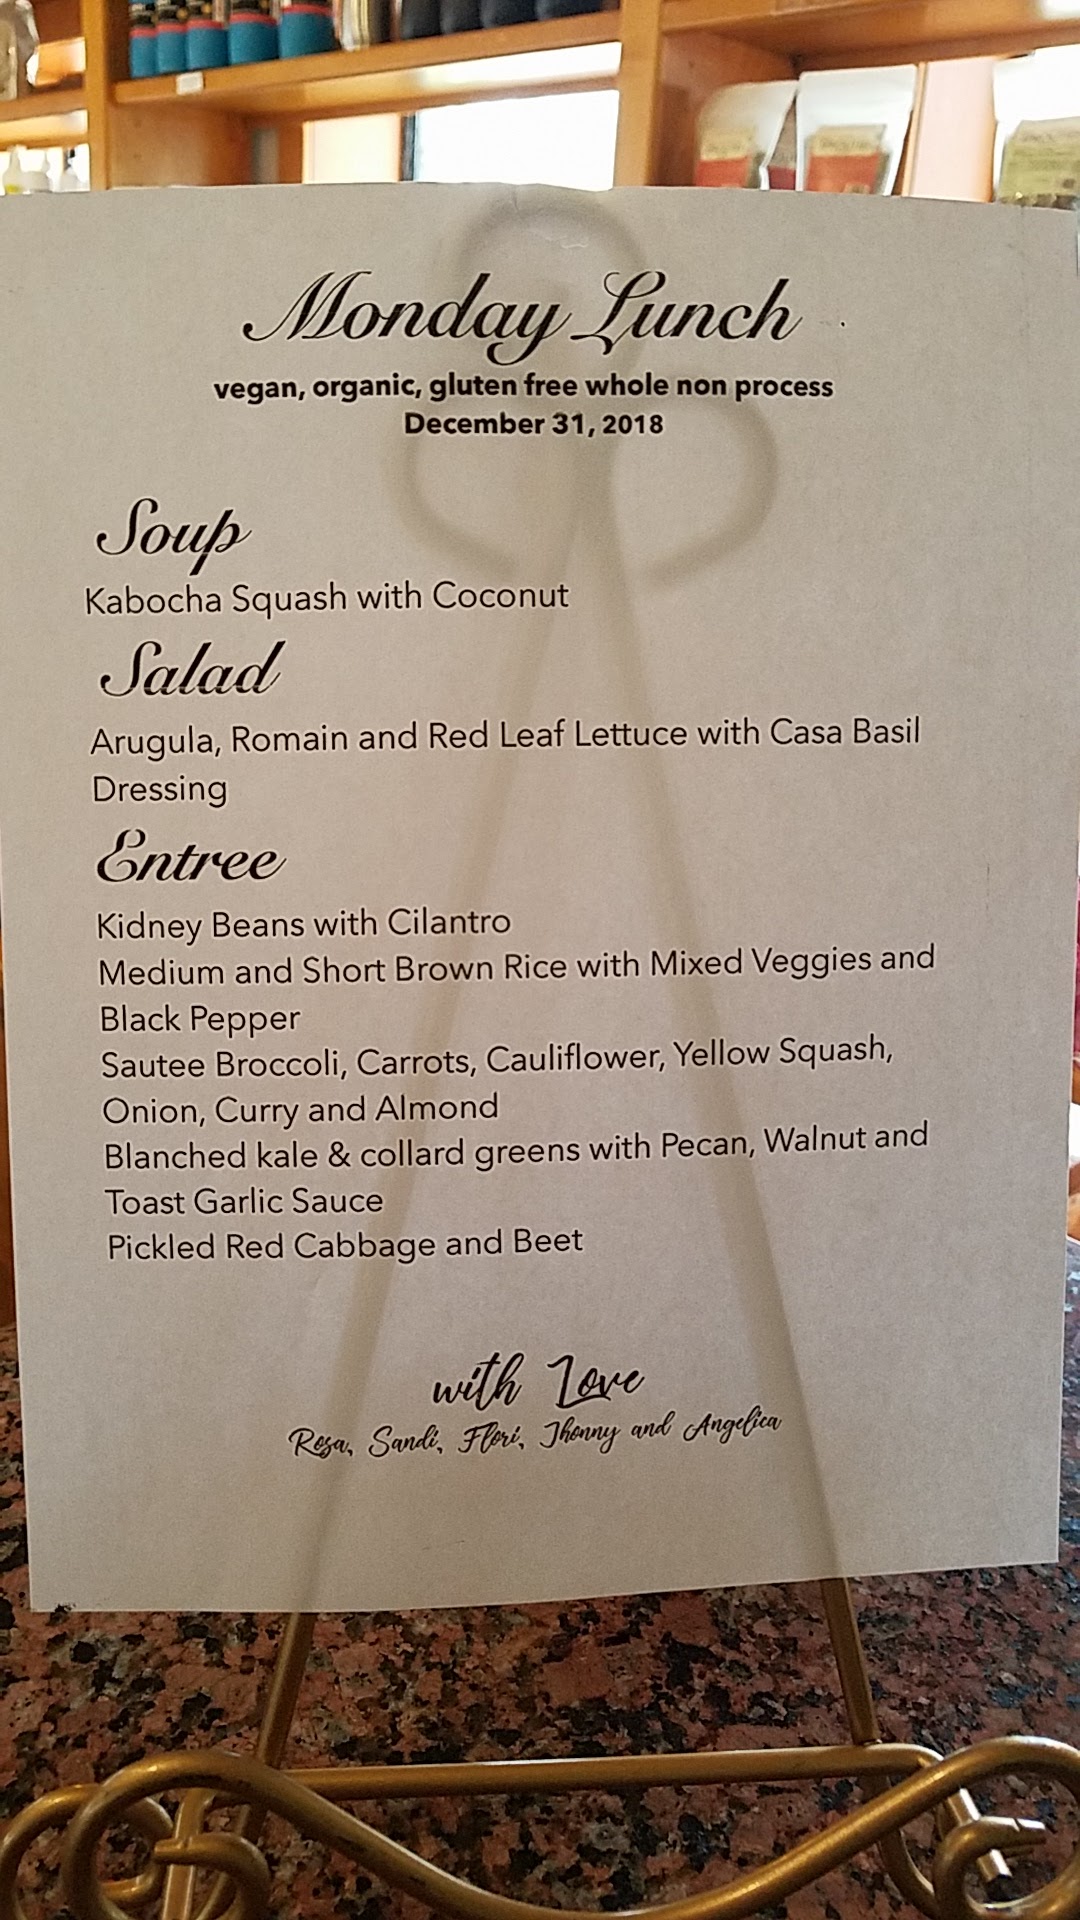 Monday Lunch
vegan, organic, gluten free whole non process
December 31, 2018
Soup
Kabocha Squash with Coconut
Salad
Arugula, Romain and Red Leaf Lettuce with Casa Basil
Dressing
Entree
Kidney Beans with Cilantro
Medium and Short Brown Rice with Mixed Veggies and
Black Pepper
Sautee Broccoli, Carrots, Cauliflower, Yellow Squash,
Onion, Curry and Almond
Blanched kale & collard greens with Pecan, Walnut and
Toast Garlic Sauce
Pickled Red Cabbage and Beet
with Love
Rosa, Sandi, Flori, Jhonny and Angelica